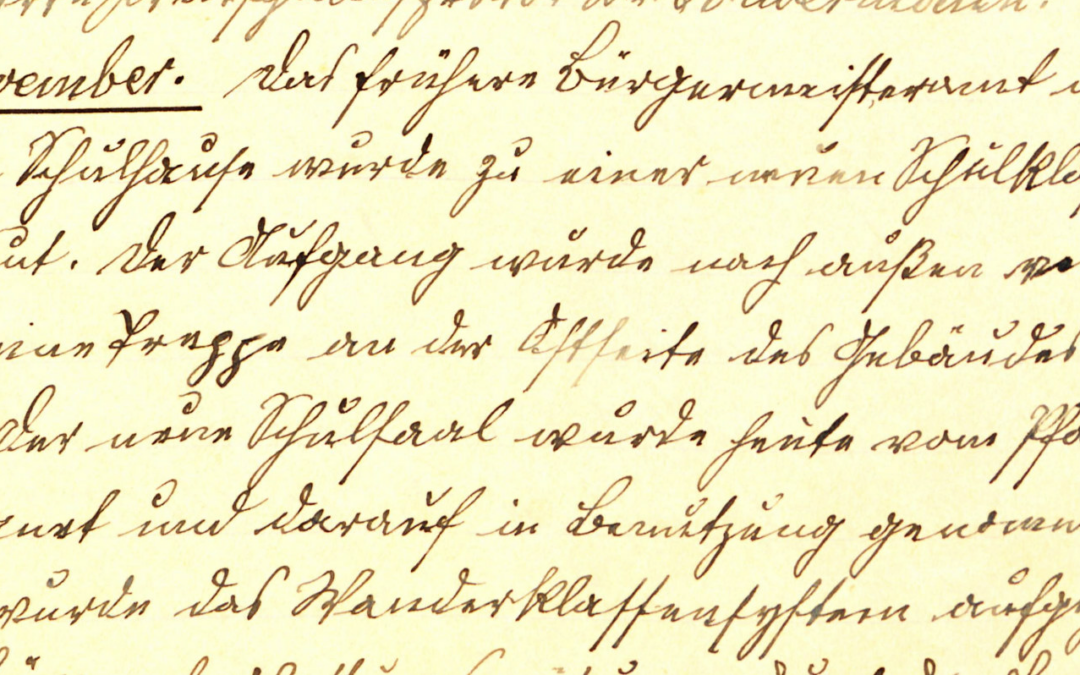 vember. Das frühere Bürgermeisteramt
Schulhause wurde zu einer neuen Schulkla
ut. Der Aufgang wurde nach außen ve
eine Treppe an der Ostseite des Gebäudes
Der neue Schulsaal wurde heute vom Pfa
gnet und darauf in Benutzung genomm
wurde das Wanderklassensystem aufge